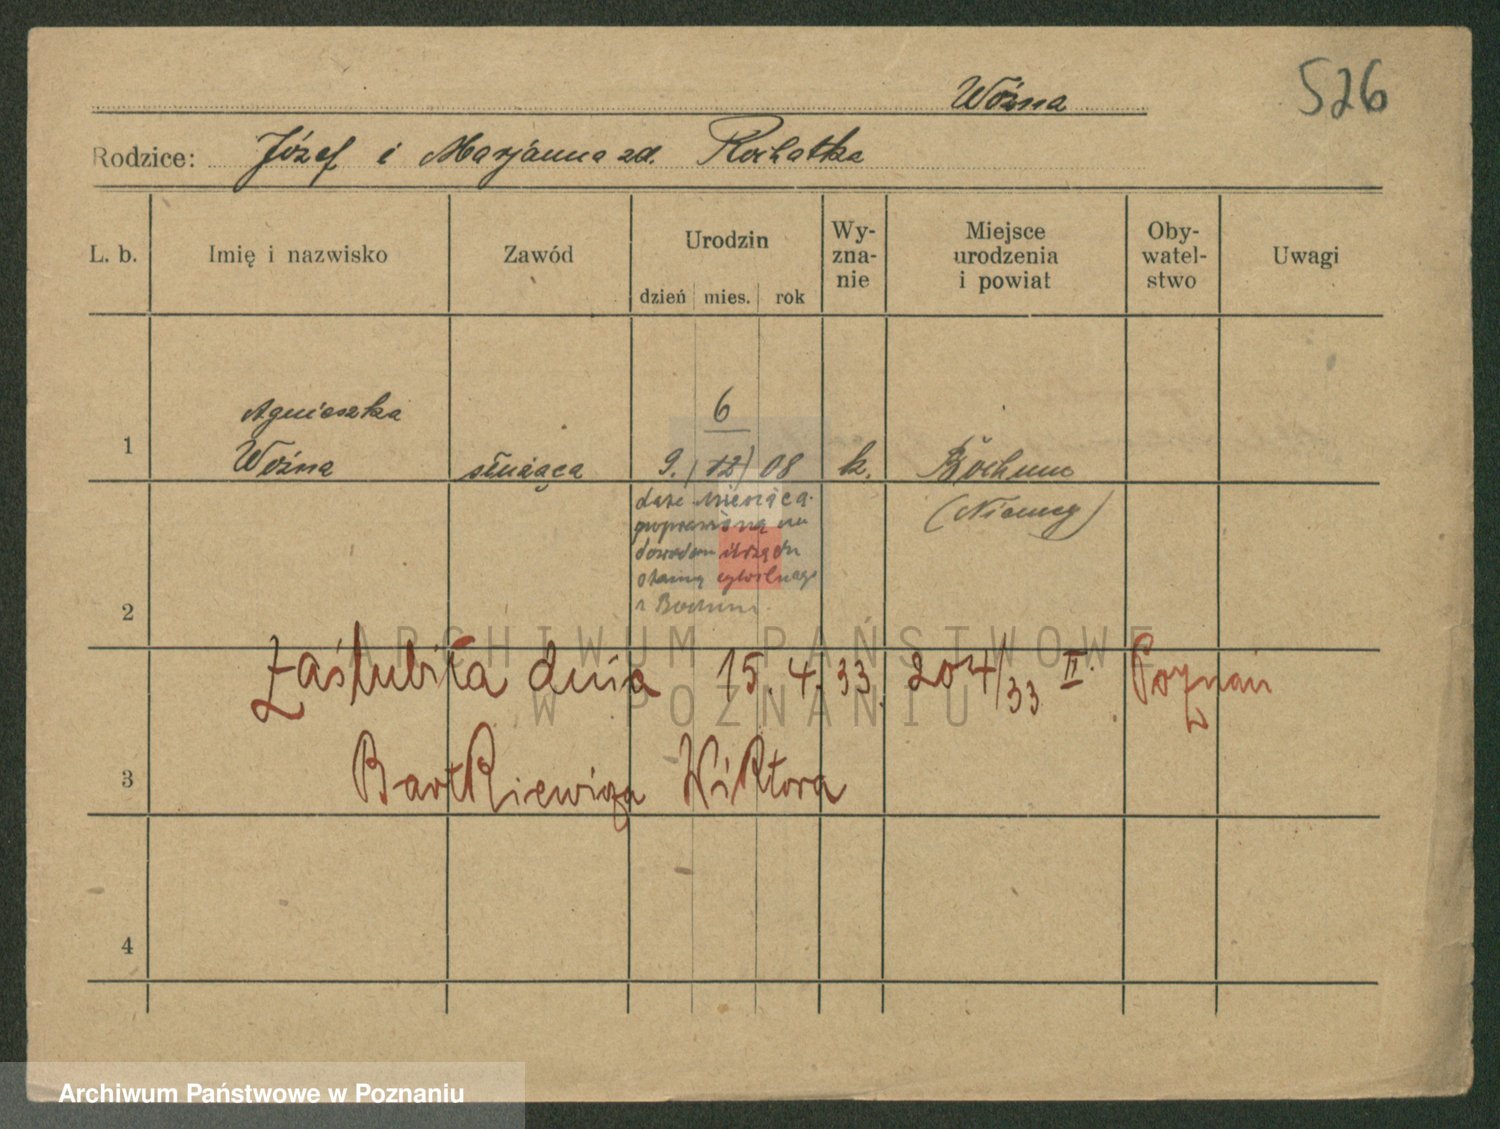 Woźna 526
Rodzice: Józef i Marjanna zd. Rochatka
L. b. Imię i nazwisko Zawód Urodzin dzień mies. rok Wy-zna-nie Miejsce urodzenia i powiat Oby-watel-stwo Uwagi
Agnieszka 6
1 Woźna służąca 9. (12) 08 k. Bochum
(Niemcy)
datę miesiąca
poprawiono na
dowodem Urzędu
stanu cywilnego
z Bochum.
2
Zaślubiła dnia 15. 4. 33. 204/33 II. Poznań
3 Bartkiewicza Wiktora
4
ARCHIWUM PAŃSTWOWE
W POZNANIU
Archiwum Państwowe w Poznaniu